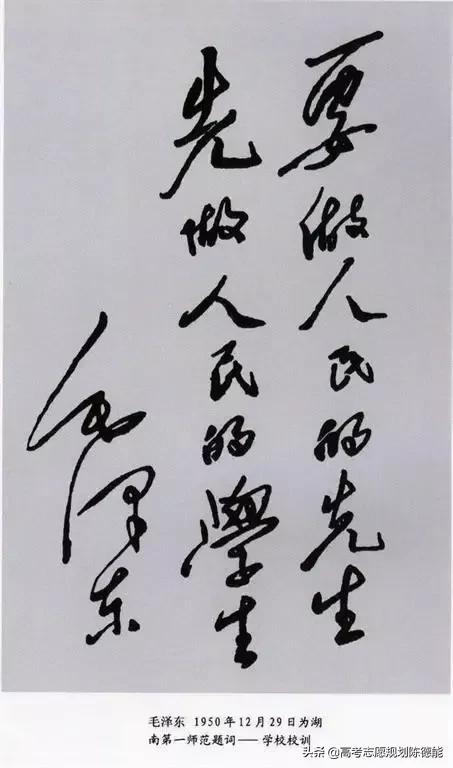 要做人民的先生
先做人民的學生
毛泽东
毛泽东 1950年12月29日为湖
南第一师范题词——学校校训
头条 @高考志愿规划陈德能